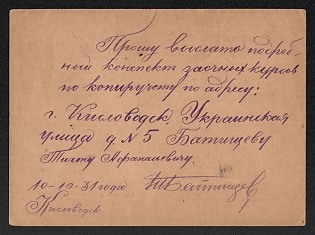 Прошу выслать подроб-
ный конспект заочных курсов
по копиручету по адресу:
г. Кисловодск Украинская
улица д. № 5 Батищеву
Тихону Афанасьевичу.
10-10-31 года
Кисловодск